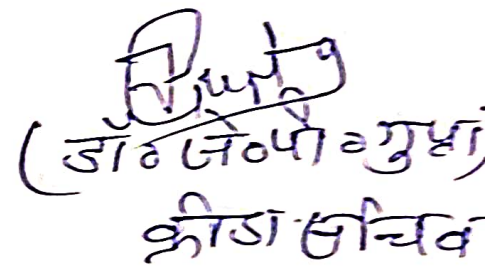 (डॉ० जे०पी० गुप्ता)
क्रीडा सचिव